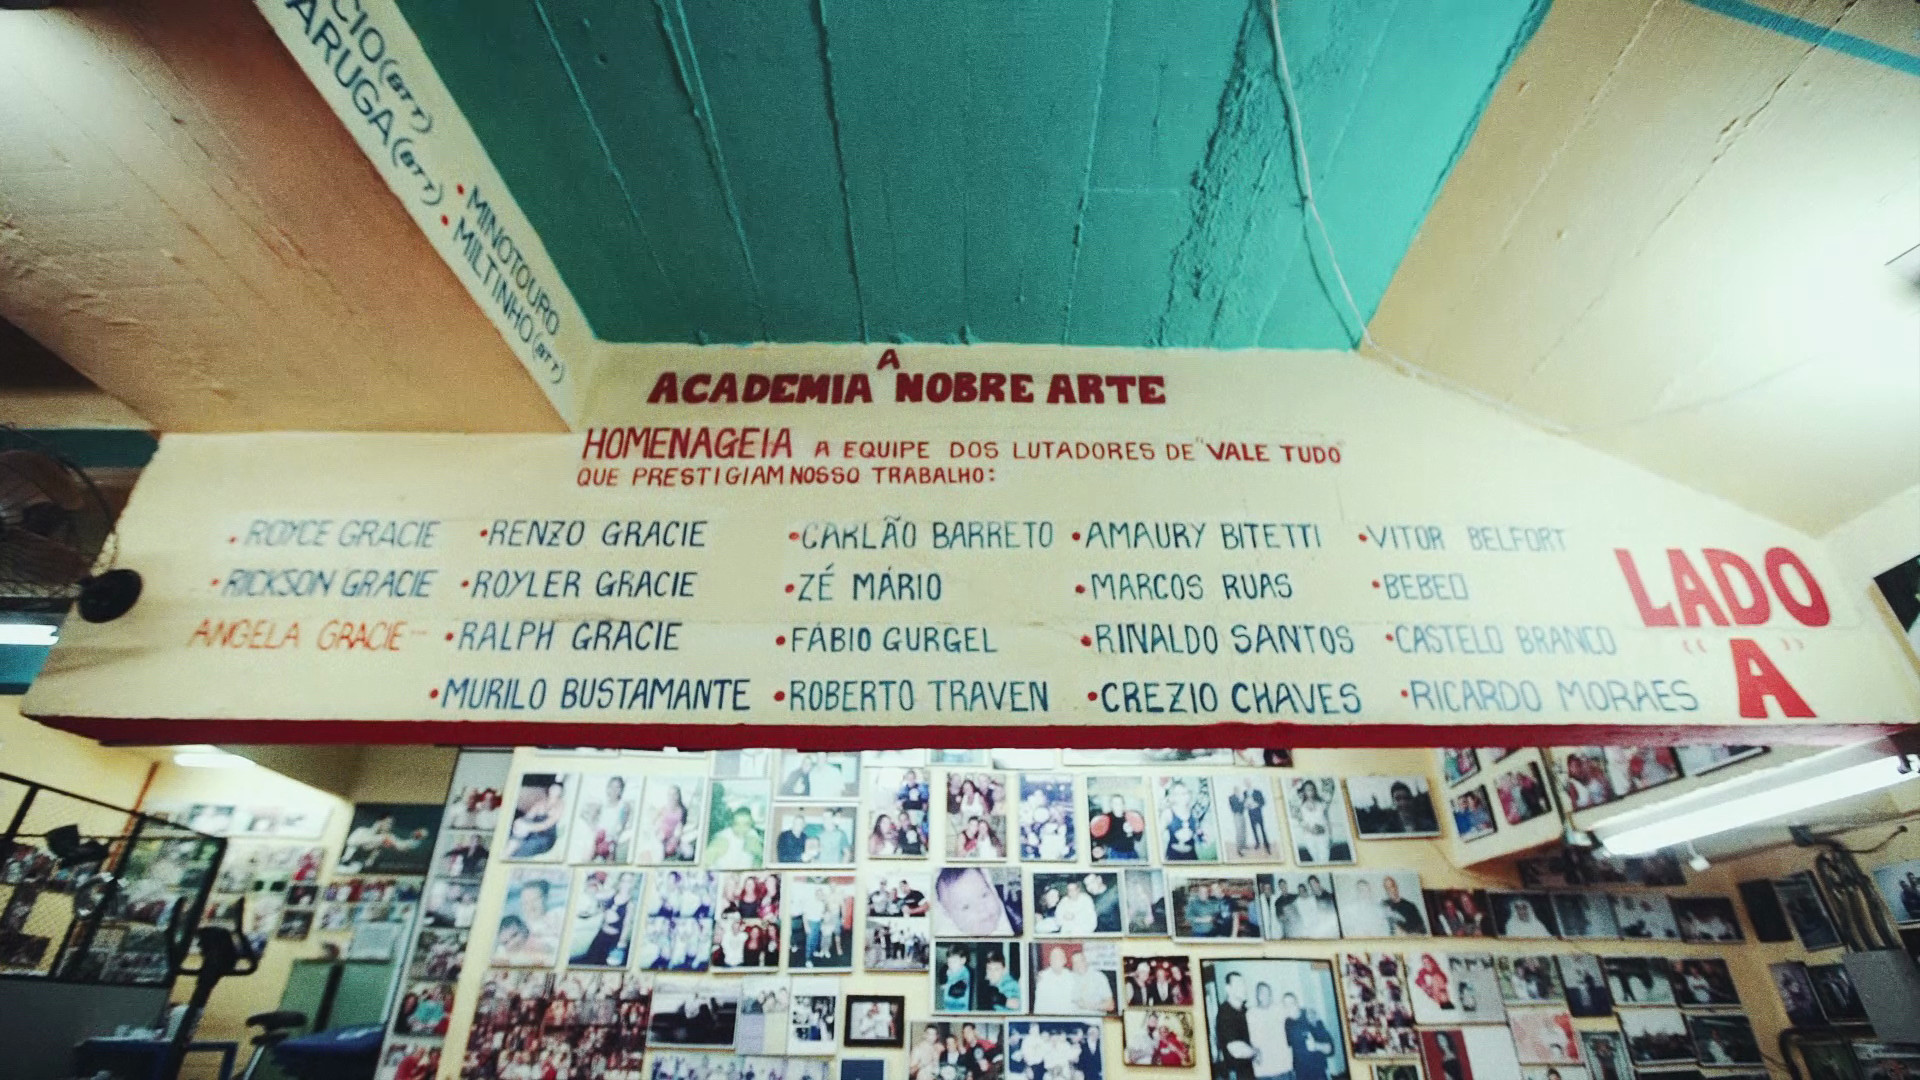 CIO (BTT)
ARUGA (BTT)
• MINOTOURO
• MILTINHO (BTT)
A
ACADEMIA NOBRE ARTE
HOMENAGEIA A EQUIPE DOS LUTADORES DE "VALE TUDO"
QUE PRESTIGIAM NOSSO TRABALHO:
• ROYCE GRACIE • RENZO GRACIE • CARLÃO BARRETO • AMAURY BITETTI • VITOR BELFORT
• RICKSON GRACIE • ROYLER GRACIE • ZÉ MÁRIO • MARCOS RUAS • BEBEO
ANGELA GRACIE • RALPH GRACIE • FÁBIO GURGEL • RINALDO SANTOS • CASTELO BRANCO
• MURILO BUSTAMANTE • ROBERTO TRAVEN • CREZIO CHAVES • RICARDO MORAES
LADO
"A"